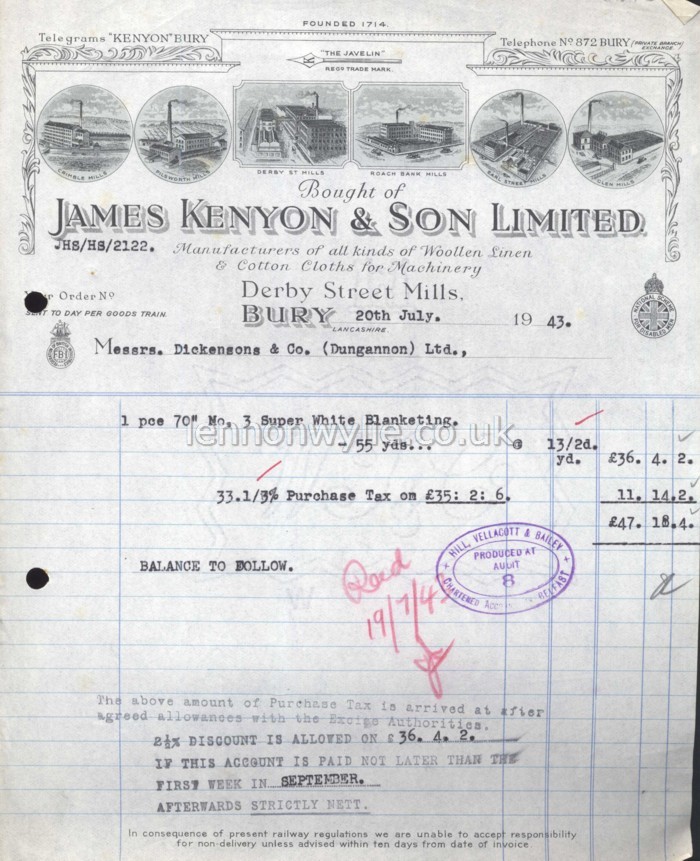 FOUNDED 1714.
Telegrams "KENYON" BURY
Telephone No 872 BURY (PRIVATE BRANCH EXCHANGE.
"THE JAVELIN"
REGD TRADE MARK.
CRIMBLE MILLS
PILSWORTH MILLS
DERBY ST MILLS
ROACH BANK MILLS
EARL STREET MILLS
GLEN MILLS
Bought of
JAMES KENYON & SON LIMITED.
JHS/HS/2122.
Manufacturers of all kinds of Woollen Linen
& Cotton Cloths for Machinery
Your Order No
Derby Street Mills,
SENT TO DAY PER GOODS TRAIN.
BURY 20th July. 19 43.
LANCASHIRE.
FBI
NATIONAL SCHEME FOR DISABLED MEN
Messrs. Dickensons & Co. (Dungannon) Ltd.,
1 pce 70" No. 3 Super White Blanketing.
lennonwylie.co.uk
- 55 yds... @ 13/2d. yd. £36. 4. 2.
33.1/3% Purchase Tax on £35: 2: 6. 11. 14.2.
£47. 18.4.
HILL, VELLACOTT & BAILEY
PRODUCED AT
AUDIT
8
CHARTERED BELFAST
BALANCE TO FOLLOW.
19/7/4
The above amount of Purchase Tax is arrived at after
agreed allowances with the Excise Authorities.
2½% DISCOUNT IS ALLOWED ON £36. 4. 2.
IF THIS ACCOUNT IS PAID NOT LATER THAN THE
FIRST WEEK IN SEPTEMBER.
AFTERWARDS STRICTLY NETT.
In consequence of present railway regulations we are unable to accept responsibility
for non-delivery unless advised within ten days from date of invoice.